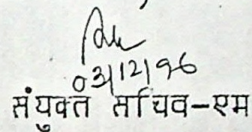 03/12/96
संयुक्त सचिव-एम